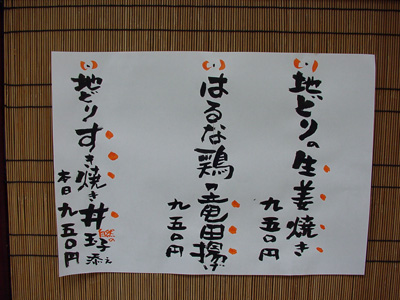 地どりの生姜焼き
九五〇円
はるな鶏の竜田揚げ
九五〇円
地どりすき焼き丼
玉子添え
本日九五〇円